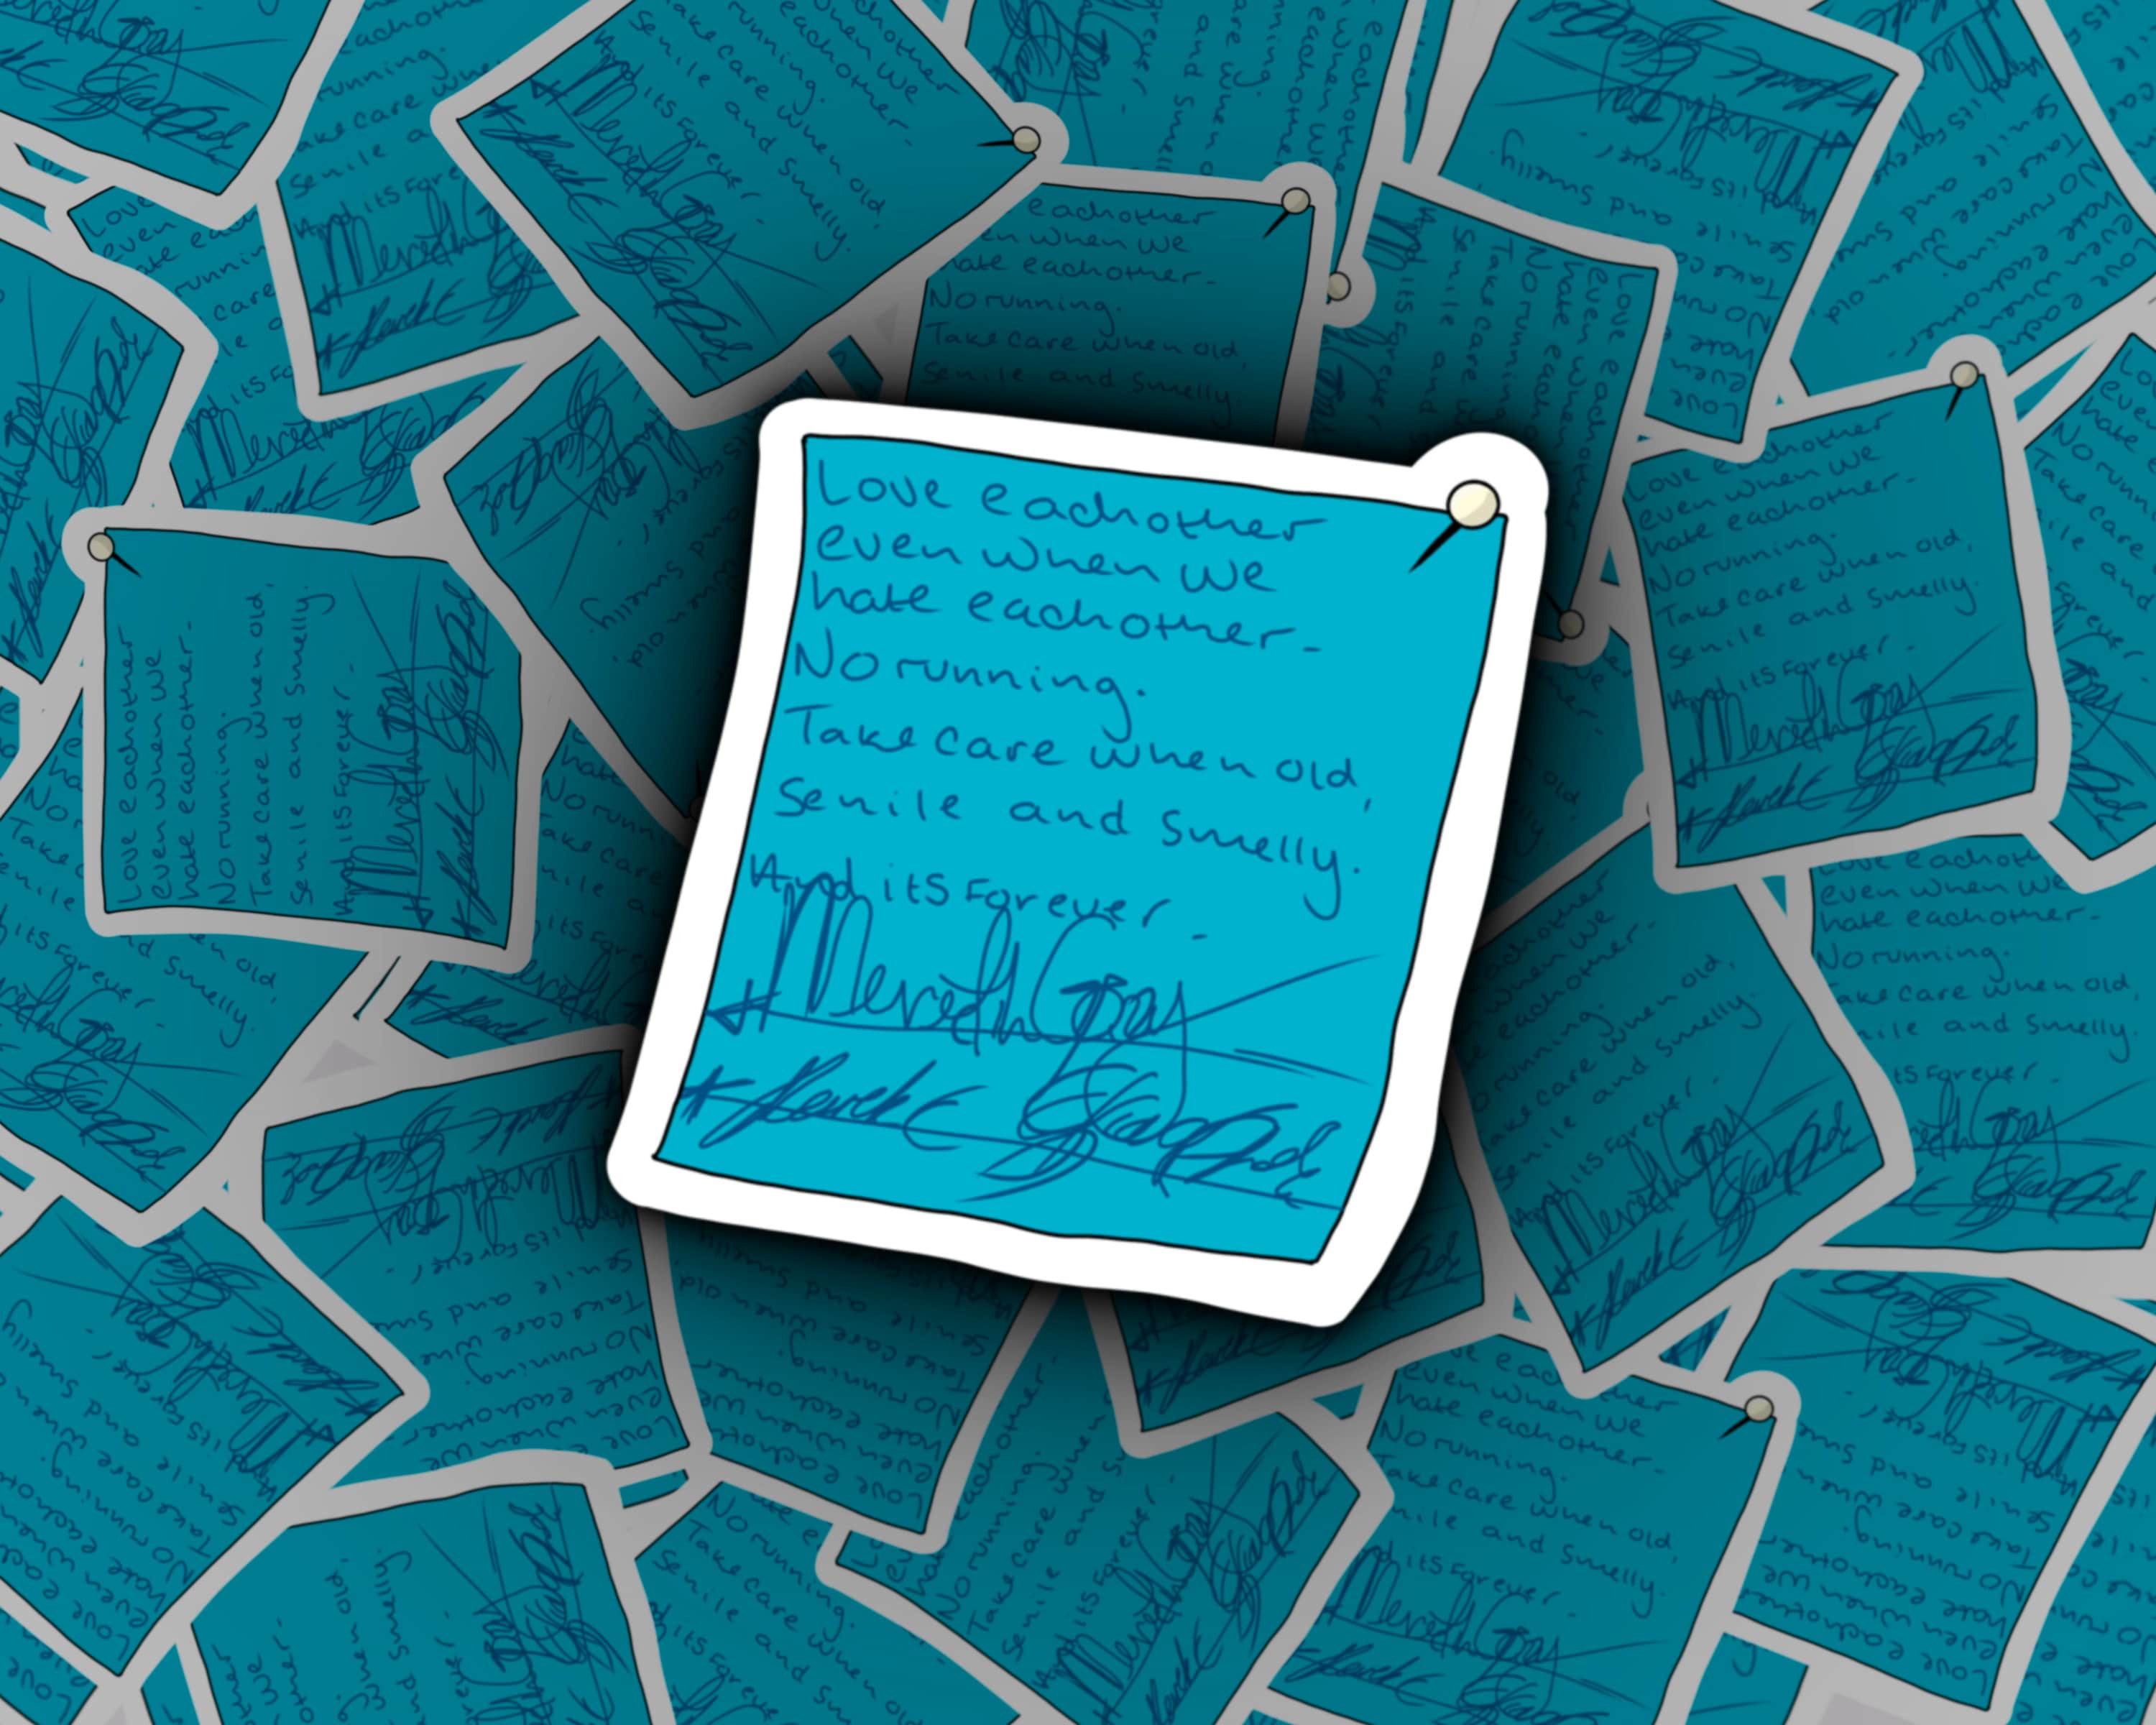 Love eachother
even when we
hate eachother-
No running.
Take care when old,
senile and smelly.
And its forever-
Meredith Grey